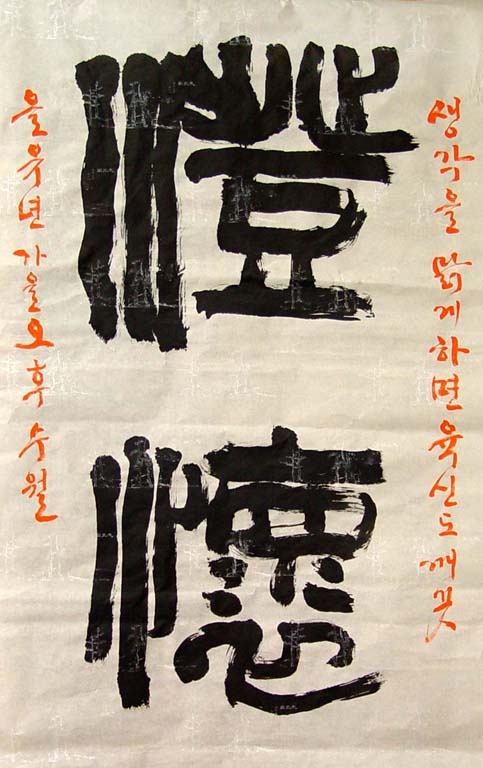 생각을 맑게하면 육신도 깨끗
澄懷
을유년 가을 오후 수월